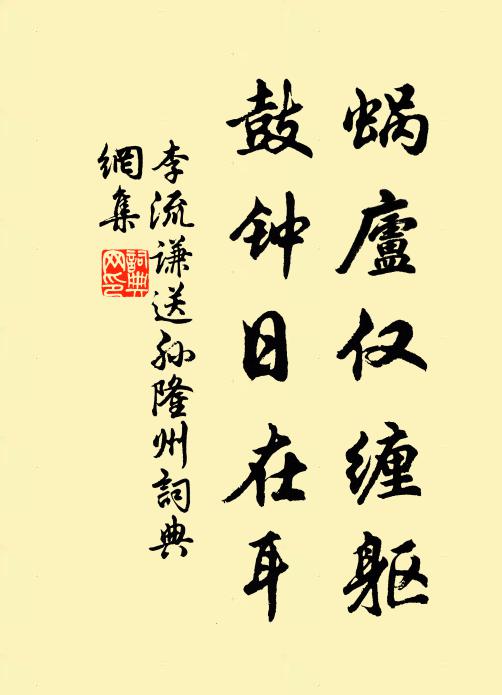 蜗廬仅缠躯
鼓钟日在耳
李流谦送孙隆州詞典
網集
詞典
网印